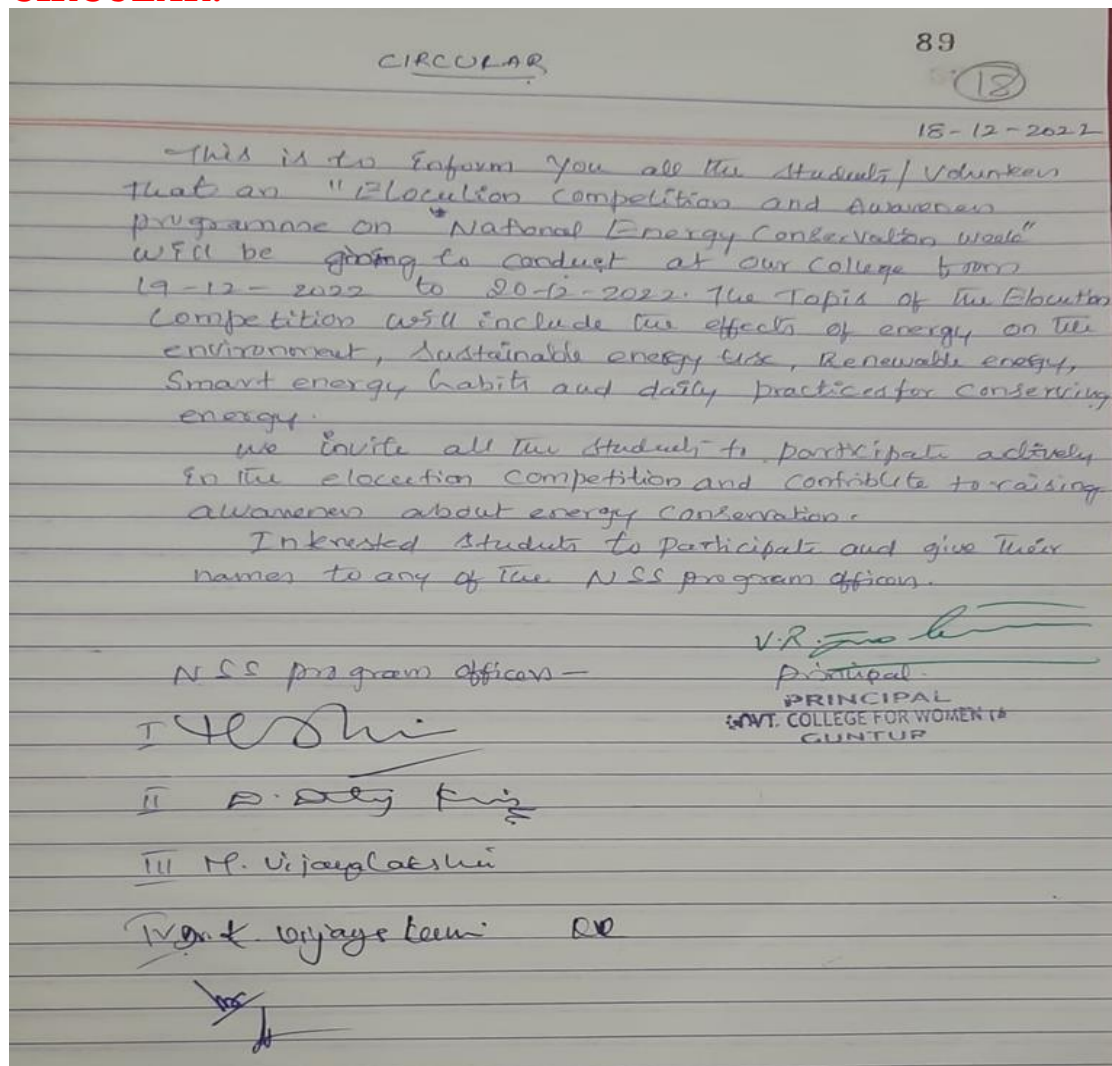 CIRCULAR
89
18
18-12-2022
This is to inform you all the students/Volunteers
that an "Elocution Competition and Awareness
programme on "National Energy Conservation week"
will be going to conduct at our College from
19-12-2022 to 20-12-2022. The Topis of the Elocution
Competition will include the effects of energy on the
environment, Sustainable energy use, Renewable energy,
Smart energy habits and daily practices for conserving
energy.
we invite all the students to participate actively
in the elocution competition and contribute to raising
awareness about energy conservation.
Interested students to participate and give their
names to any of the NSS program officers.
V.R.
NSS program officers -
Principal.
PRINCIPAL
GOVT. COLLEGE FOR WOMEN (A
GUNTUR
I
II D.
III M. Vijayalakshmi
IV Dr. K.